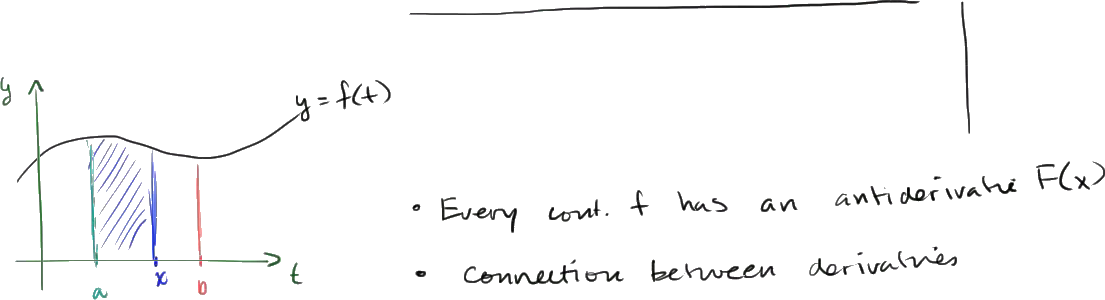 y
y = f(t)
a
x
b
t
• Every cont. f has an antiderivative F(x)
• connection between derivatives